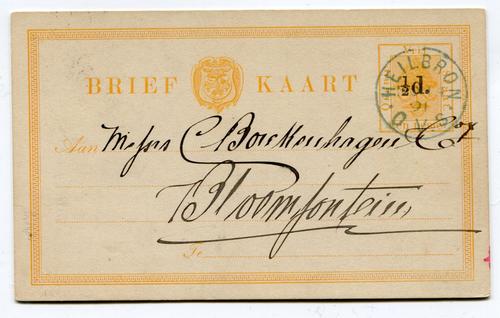 BRIEF KAART
½d.
HEILBRON
O
S
Aan Messrs C Borckenhagen & Co
Bloemfontein
Te